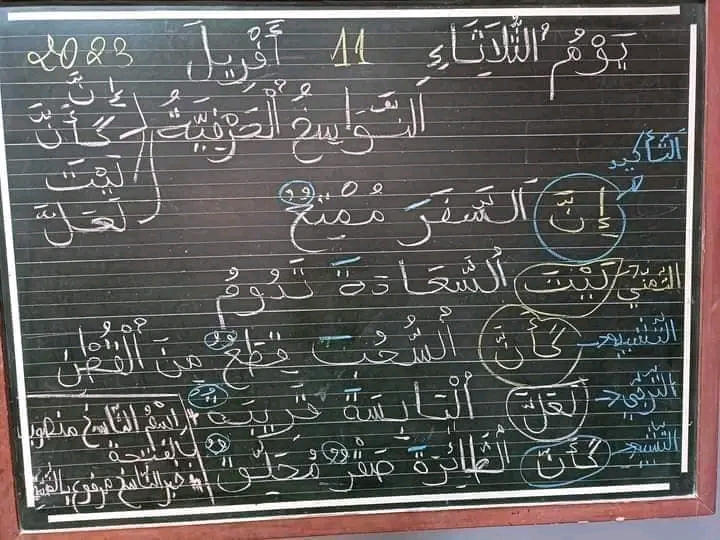 يَوْمُ الثُّلَاثَاءِ 11 أَفْرِيلَ 2023
اَلنَّوَاسِخُ الْحَرْفِيَّةُ
إِنَّ
كَأَنَّ
لَيْتَ
لَعَلَّ
اَلتَّأْكِيد
إِنَّ اَلسَّفَرَ مُمْتِعٌ
التَّمَنِّي لَيْتَ اُلسَّعَادَةَ تَدُومُ
التَّشْبِيه كَأَنَّ اُلسُّحُبَ قِطَعٌ مِنَ الْقُطْنِ
التَّرَجِّي لَعَلَّ الْيَابِسَةَ قَرِيبَةٌ
التَّشْبِيه كَأَنَّ الطَّائِرَةَ صَقْرٌ مُحَلِّقٌ
* اسم النّاسخ منصوب
بالفتحة
* خبر النّاسخ مرفوع بالضّمّة